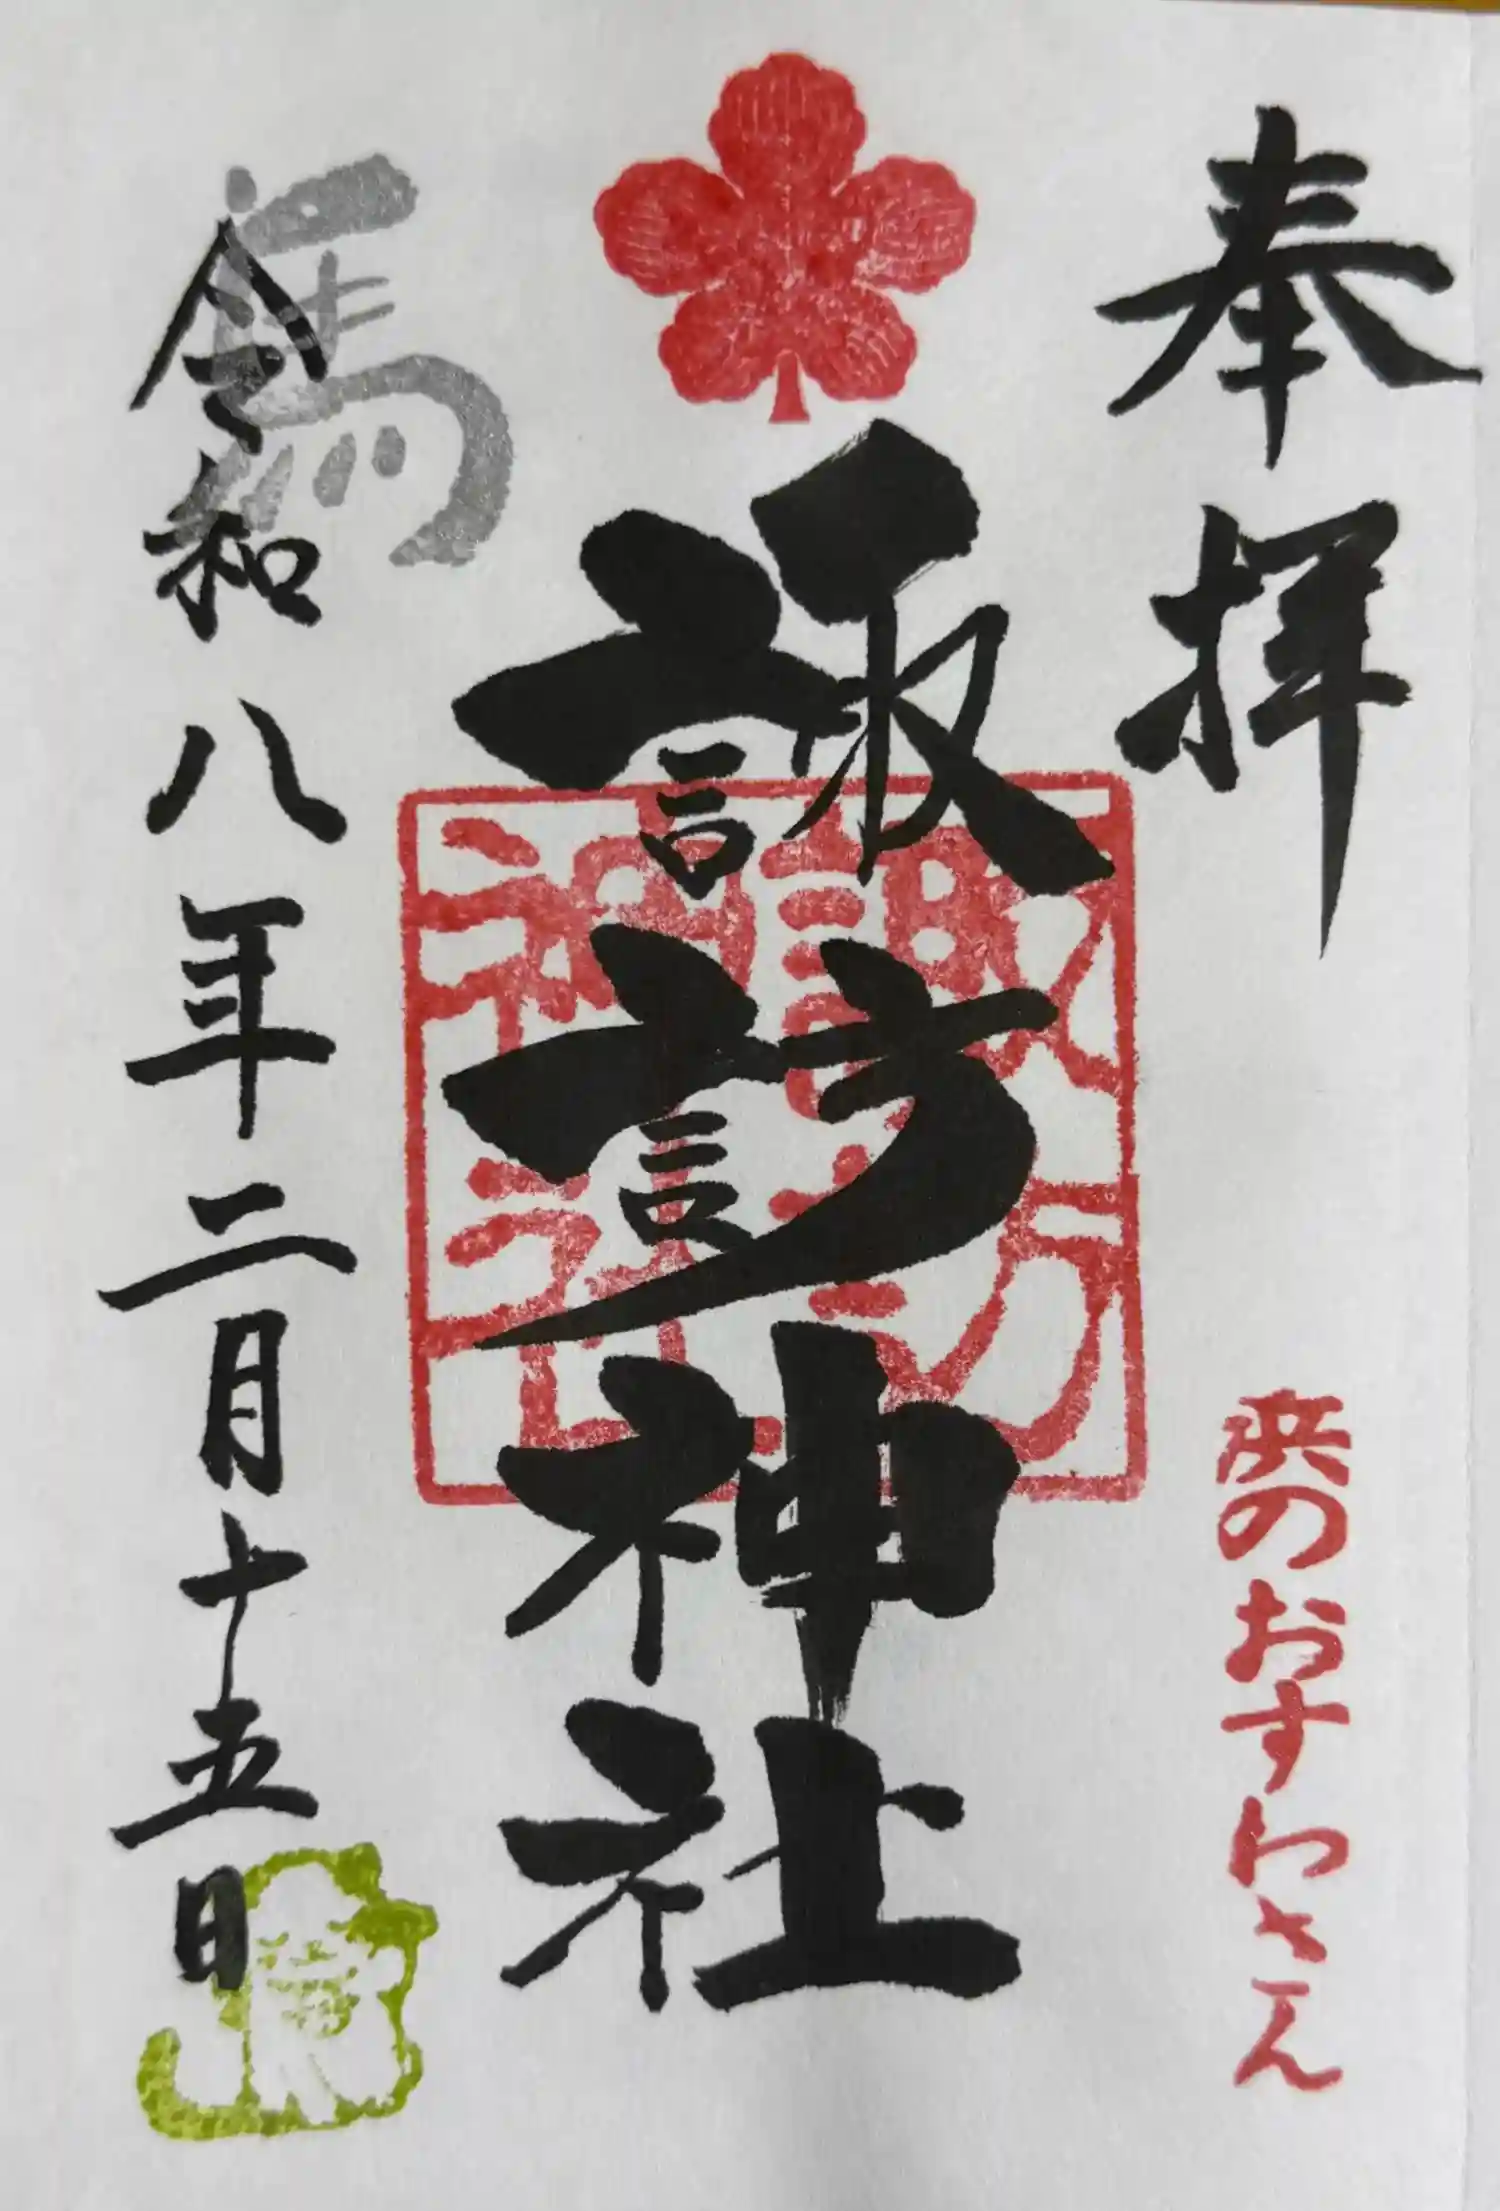 奉拝
浜のおすわさん
諏訪神社
諏訪神社
令和八年二月十五日
馬